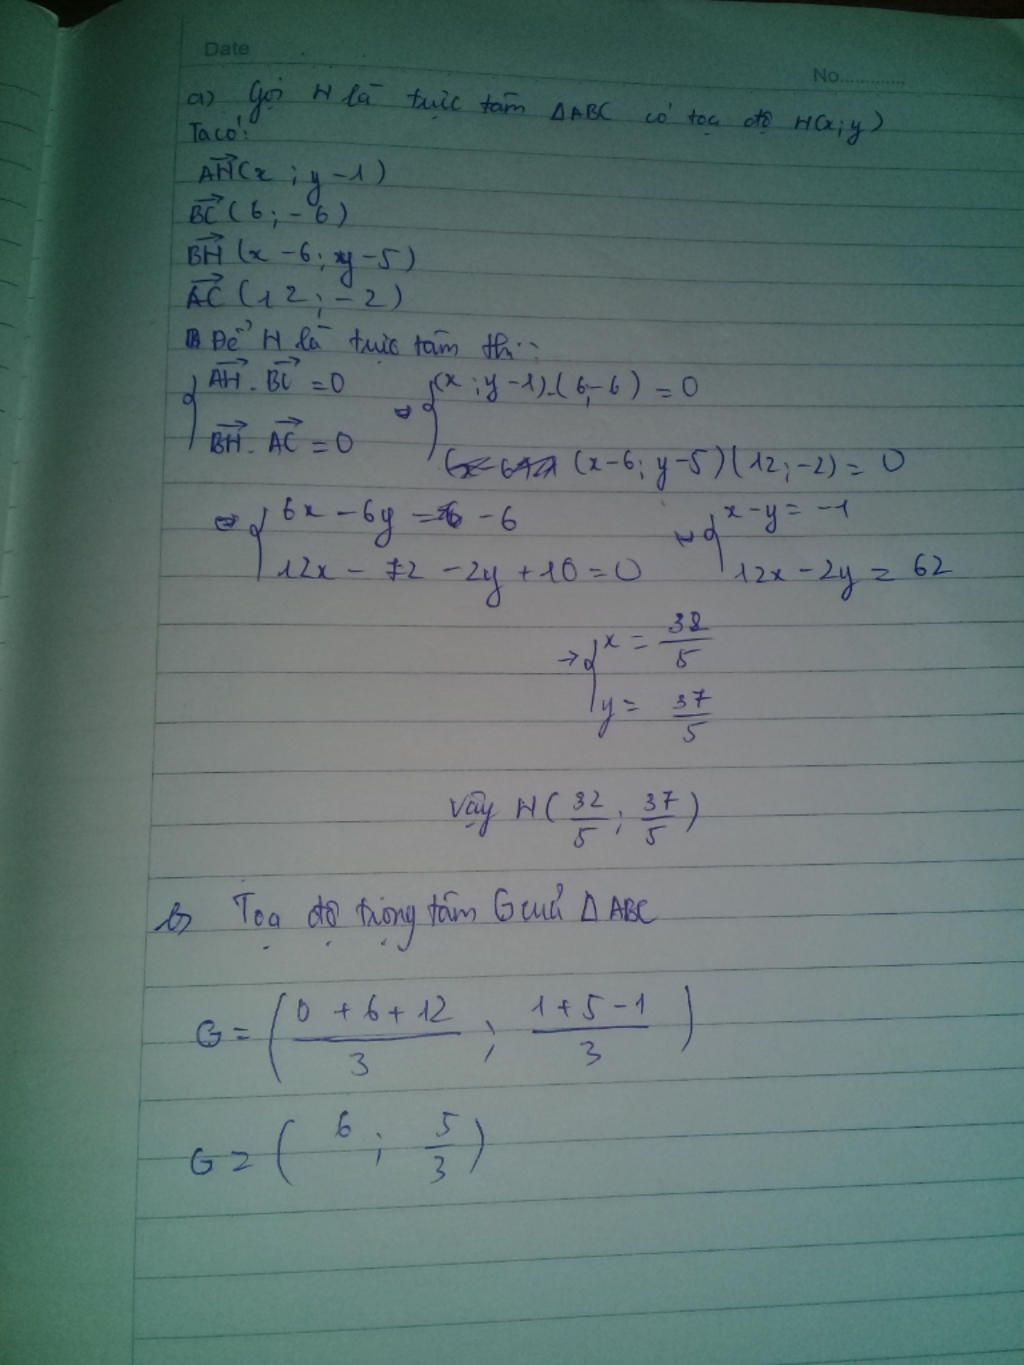 Date
No.............
a) Gọi H là trực tâm ΔABC có tọa độ H(x;y)
Ta có:
AH(x ; y-1)
BC(6; -6)
BH(x-6; y-5)
AC(12; -2)
Để H là trực tâm thì:
AH . BC = 0 ⇔ (x ; y-1).(6;-6) = 0
BH . AC = 0 (x-6; y-5)(12; -2) = 0
⇔ 6x - 6y = -6 ↔ x-y = -1
12x - 72 - 2y + 10 = 0 12x - 2y = 62
→ x = 32/5
y = 37/5
Vậy H(32/5 ; 37/5)
b) Tọa độ trọng tâm G của ΔABC
G = (0+6+12/3 ; 1+5-1/3)
G = (6 ; 5/3)